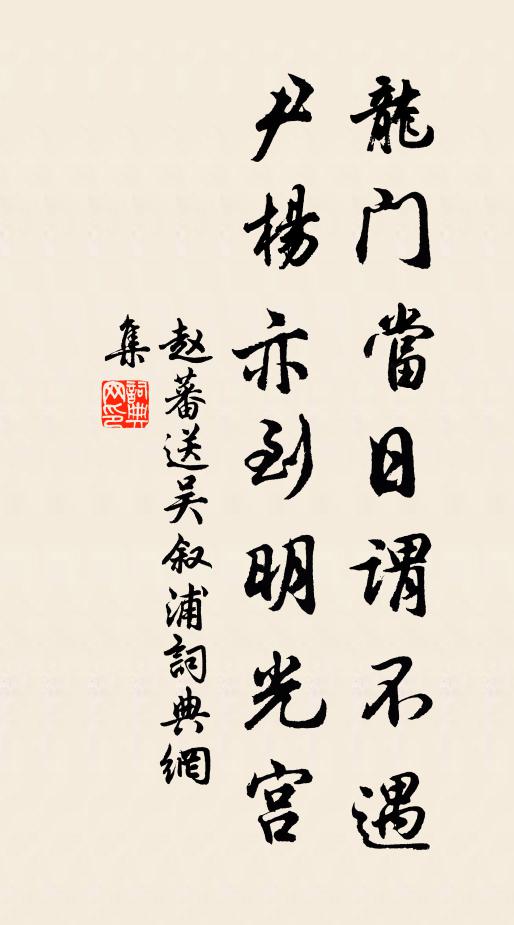 龍门當日謂不遇
尹楊亦到明光宫
赵蕃送吴叙浦詞典網
集
詞典网印